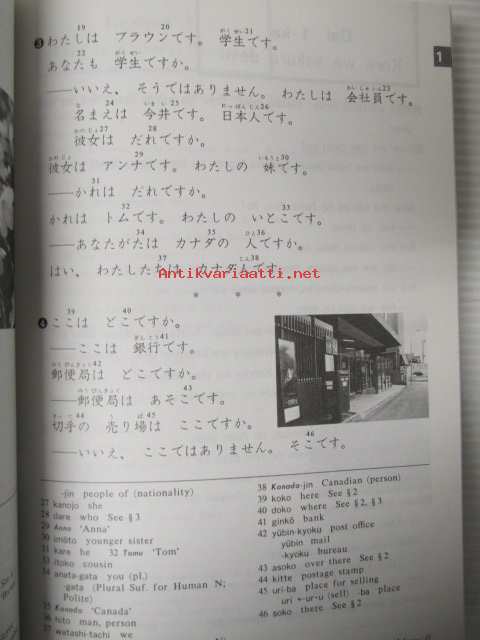 ❸わたしは ブラウンです。 学生です。
あなたも 学生ですか。
——いいえ、 そうではありません。 わたしは 会社員です。
名まえは 今井です。 日本人です。
彼女は だれですか。
彼女は アンナです。 わたしの 妹です。
——かれは だれですか。
かれは トムです。 わたしの いとこです。
——あなたがたは カナダの 人ですか。
はい、 わたしたちは カナダ人です。
* * *
❹ここは どこですか。
——ここは 銀行です。
郵便局は どこですか。
——郵便局は あそこです。
切手の 売り場は ここですか。
——いいえ、 ここではありません。 そこです。
1
Antikvariaatti.net
-jin people of (nationality)
27 kanojo she
28 dare who See §3
29 Anna 'Anna'
30 imōto younger sister
31 kare he 32 Tomu 'Tom'
33 itoko cousin
34 anata-gata you (pl.)
-gata (Plural Suf. for Human N;
Polite)
35 Kanada 'Canada'
36 hito man, person
37 watashi-tachi we
38 Kanada-jin Canadian (person)
39 koko here See §2
40 doko where See §2, §3
41 ginkō bank
42 yūbin-kyoku post office
yūbin mail
-kyoku bureau
43 asoko over there See §2
44 kitte postage stamp
45 uri-ba place for selling
uri ←ur-u (sell) -ba place
46 soko there See §2